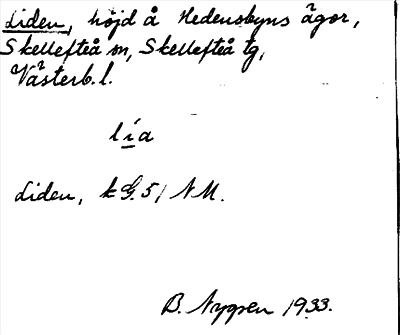 Liden, höjd å Hedensbyns ägor,
Skellefteå sn, Skellefteå tg,
Västerb. l.
lia
Liden, k G. 51 NM.
B. Nygren 1933.